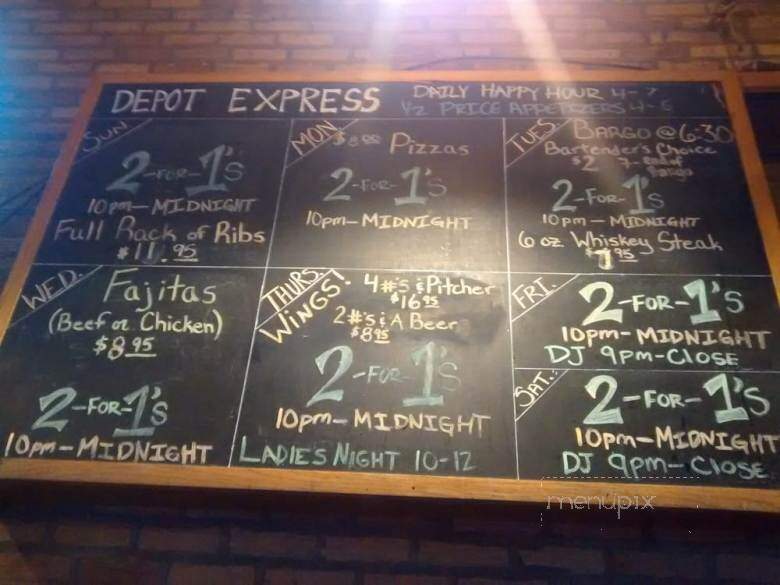 DEPOT EXPRESS
DAILY HAPPY HOUR 4-7
1/2 PRICE APPETIZERS 4-6
SUN
2-FOR-1'S
10pm-MIDNIGHT
Full Rack of Ribs
$11.95
MON
$8.00 Pizzas
2-FOR-1'S
10pm-MIDNIGHT
TUES
BARGO @ 6:30
Bartender's Choice
$2 7-end of
Bargo
2-FOR-1'S
10pm-MIDNIGHT
6 oz Whiskey Steak
$7.95
WED.
Fajitas
(Beef or Chicken)
$8.95
2-FOR-1'S
10pm-MIDNIGHT
THURS.
WINGS!
4#'s & Pitcher
$16.95
2#'s & A Beer
$8.95
2-FOR-1'S
10pm-MIDNIGHT
LADIES NIGHT 10-12
FRI.
2-FOR-1'S
10pm-MIDNIGHT
DJ 9pm-CLOSE
SAT.
2-FOR-1'S
10pm-MIDNIGHT
DJ 9pm-CLOSE
menupix